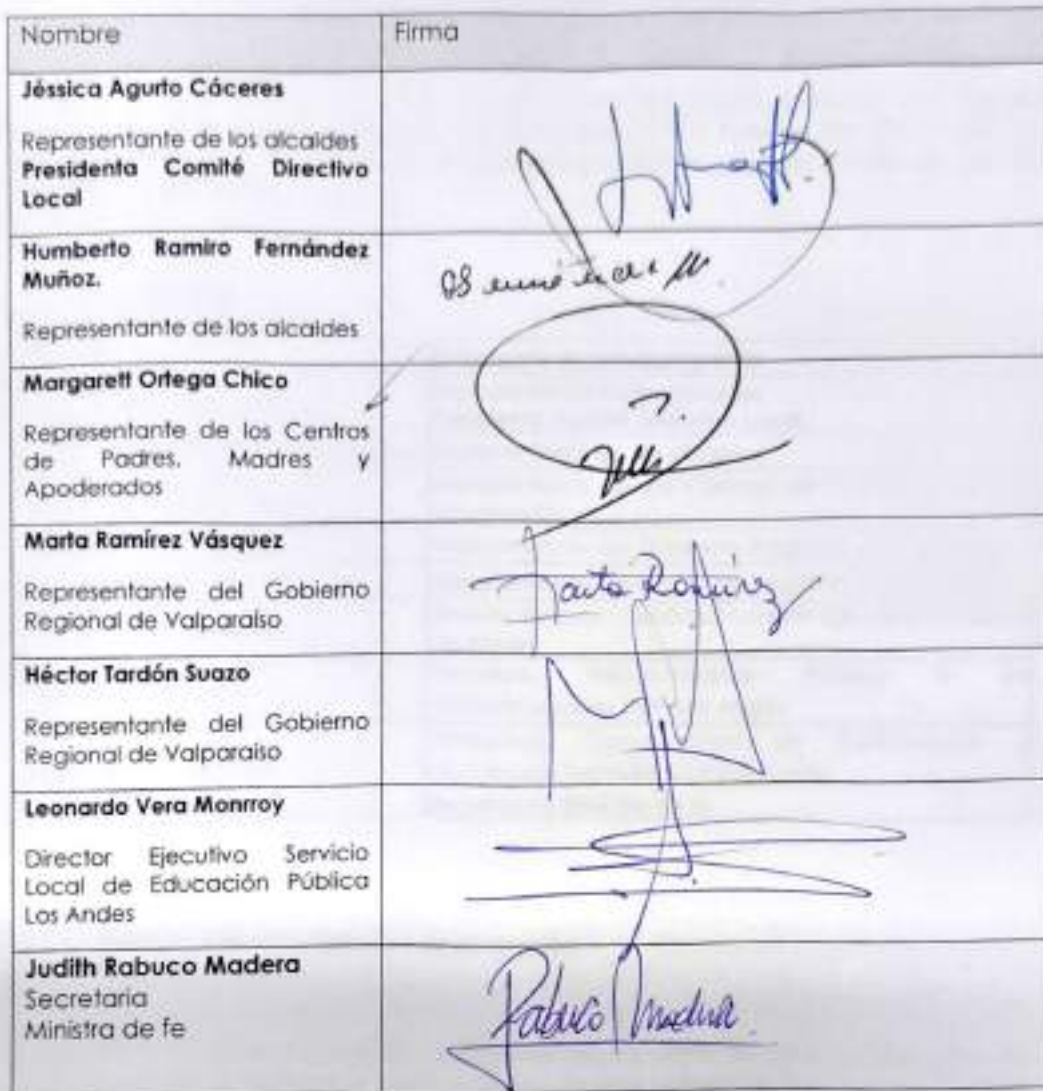 Nombre
Firma
Jéssica Agurto Cáceres
Representante de los alcaldes
Presidenta Comité Directivo
Local
Humberto Ramiro Fernández
Muñoz.
Representante de los alcaldes
Margarett Ortega Chico
Representante de los Centros
de Padres, Madres y
Apoderados
Marta Ramírez Vásquez
Representante del Gobierno
Regional de Valparaíso
Marta Ramírez
Héctor Tardón Suazo
Representante del Gobierno
Regional de Valparaíso
Leonardo Vera Monrroy
Director Ejecutivo Servicio
Local de Educación Pública
Los Andes
Judith Rabuco Madera
Secretaria
Ministra de fe
Rabuco Madera.